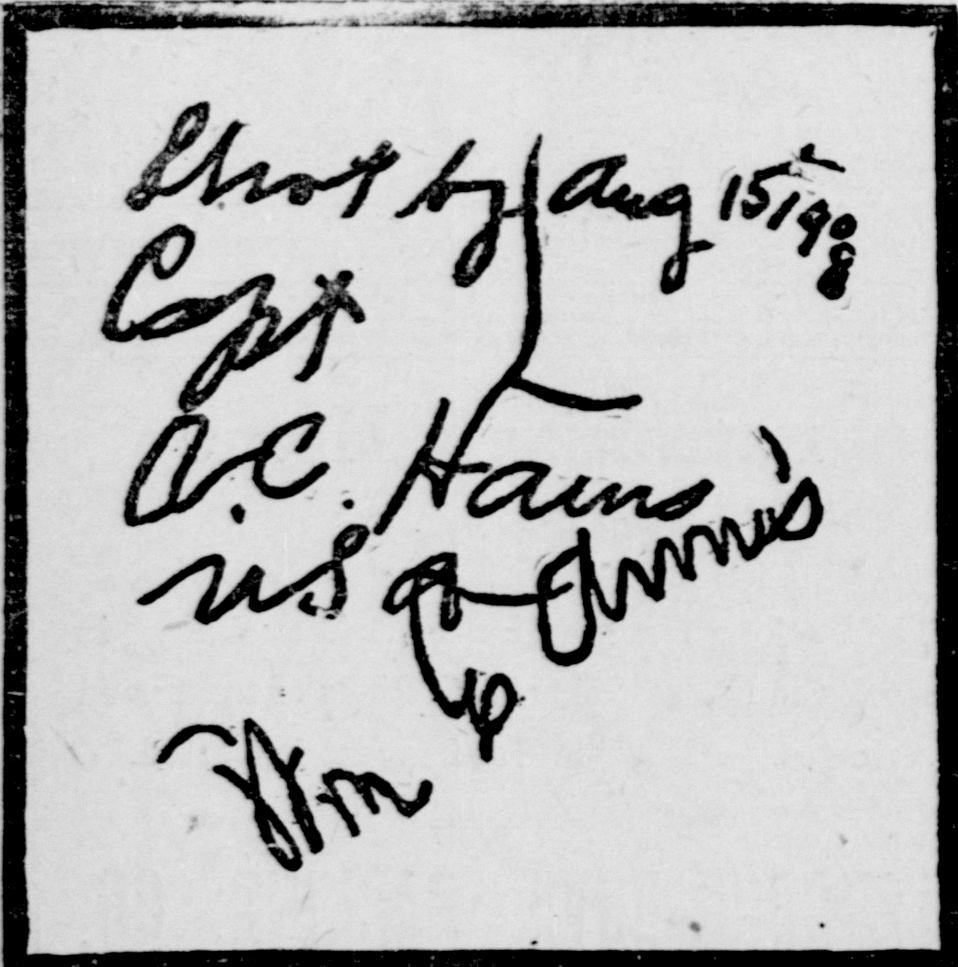 Shot by Aug 15 1908
Capt
P.C. Hains
U.S A Annis
Wm